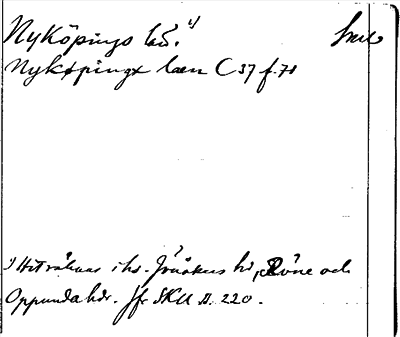 Nyköpings län. 1) Sml
Nykøpingx læn C 37 f. 71
1) Hit räknas i hs. Jönåkers hd, Röne och
Oppunda hdr. Jfr SKU II. 220.